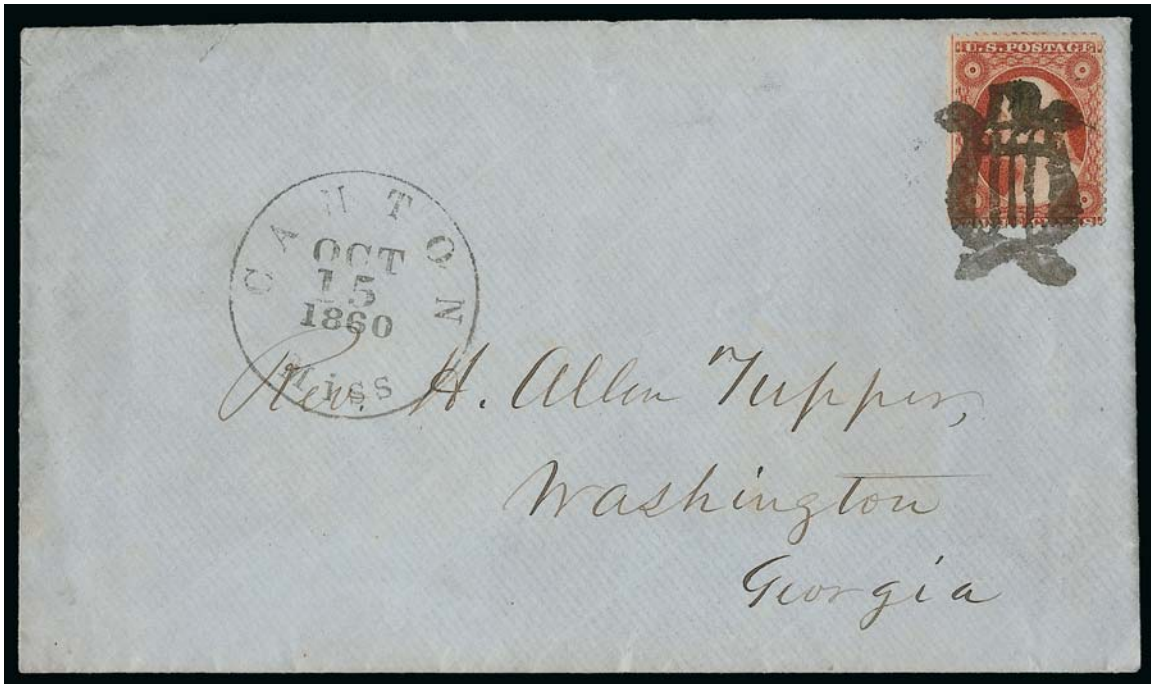 U.S. POSTAGE
CANTON
OCT
15
1860
Miss
Rev. H. Allen Tupper,
Washington
Georgia